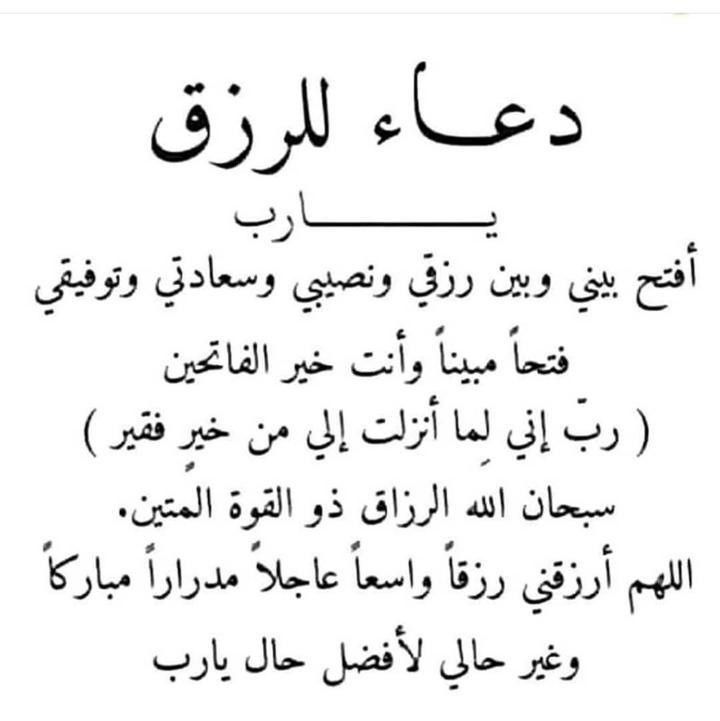 دعاء للرزق
يارب
أفتح بيني وبين رزقي ونصيبي وسعادتي وتوفيقي
فتحاً مبيناً وأنت خير الفاتحين
( ربّ إني لِما أنزلت إلي من خيرٍ فقير )
سبحان الله الرزاق ذو القوة المتين.
اللهم أرزقني رزقاً واسعاً عاجلاً مدراراً مباركاً
وغير حالي لأفضل حال يارب